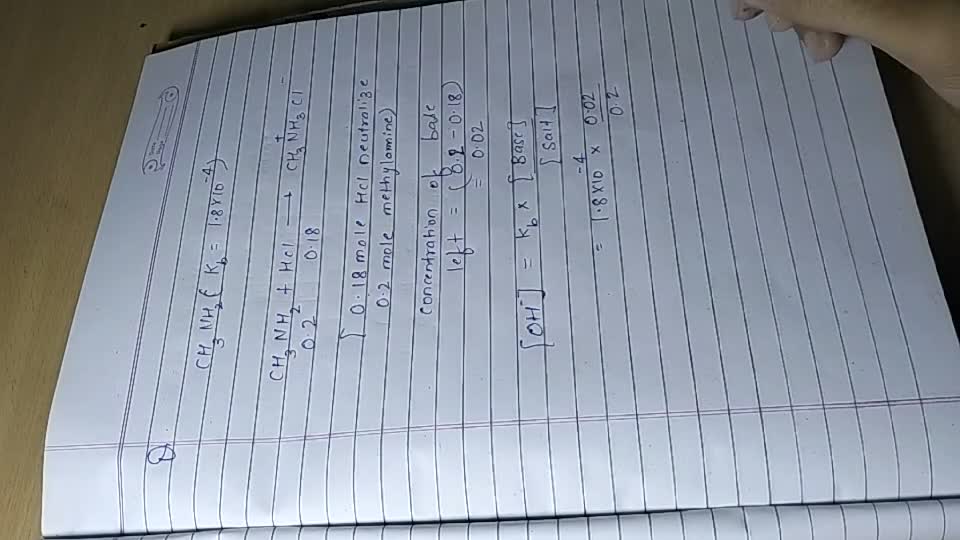 Q
CH3NH2 ( Kb = 1.8×10^-4)
CH3NH2 + HCl → CH3N+H3Cl-
0.2 0.18
[0.18 mole Hcl neutralize
0.2 mole methylamine)
concentration of base
left = (0.2 - 0.18)
= 0.02
[OH-] = Kb × [Base]
[Salt]
= 1.8×10^-4 × 0.02
0.2